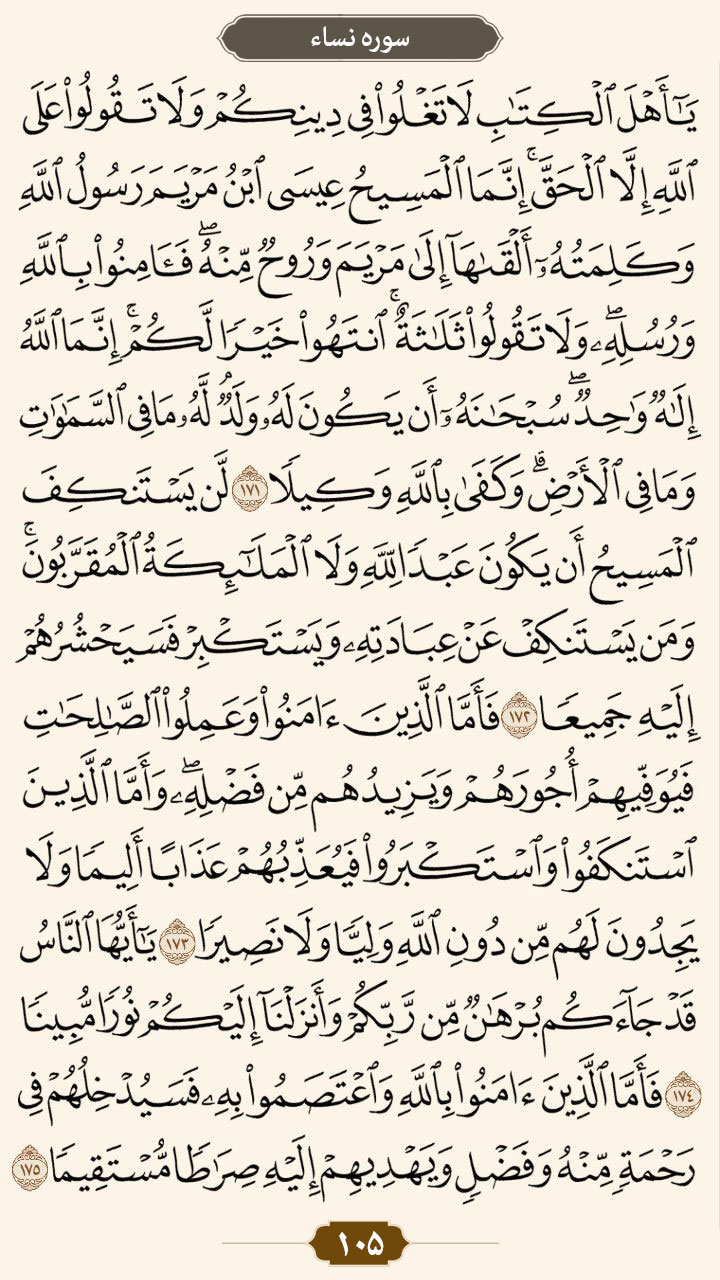 سوره نساء
يَـٰٓأَهۡلَ ٱلۡكِتَـٰبِ لَا تَغۡلُواْ فِي دِينِكُمۡ وَلَا تَقُولُواْ عَلَى
ٱللَّهِ إِلَّا ٱلۡحَقَّۚ إِنَّمَا ٱلۡمَسِيحُ عِيسَى ٱبۡنُ مَرۡيَمَ رَسُولُ ٱللَّهِ
وَكَلِمَتُهُۥٓ أَلۡقَىٰهَآ إِلَىٰ مَرۡيَمَ وَرُوحٞ مِّنۡهُۖ فَـَٔامِنُواْ بِٱللَّهِ
وَرُسُلِهِۦۖ وَلَا تَقُولُواْ ثَلَـٰثَةٌۚ ٱنتَهُواْ خَيۡرٗا لَّكُمۡۚ إِنَّمَا ٱللَّهُ
إِلَـٰهٞ وَٰحِدٞۖ سُبۡحَـٰنَهُۥٓ أَن يَكُونَ لَهُۥ وَلَدٞۘ لَّهُۥ مَا فِي ٱلسَّمَـٰوَٰتِ
وَمَا فِي ٱلۡأَرۡضِۗ وَكَفَىٰ بِٱللَّهِ وَكِيلٗا ١٧١ لَّن يَسۡتَنكِفَ
ٱلۡمَسِيحُ أَن يَكُونَ عَبۡدٗا لِّلَّهِ وَلَا ٱلۡمَلَـٰٓئِكَةُ ٱلۡمُقَرَّبُونَۚ
وَمَن يَسۡتَنكِفۡ عَنۡ عِبَادَتِهِۦ وَيَسۡتَكۡبِرۡ فَسَيَحۡشُرُهُمۡ
إِلَيۡهِ جَمِيعٗا ١٧٢ فَأَمَّا ٱلَّذِينَ ءَامَنُواْ وَعَمِلُواْ ٱلصَّـٰلِحَـٰتِ
فَيُوَفِّيهِمۡ أُجُورَهُمۡ وَيَزِيدُهُم مِّن فَضۡلِهِۦۖ وَأَمَّا ٱلَّذِينَ
ٱسۡتَنكَفُواْ وَٱسۡتَكۡبَرُواْ فَيُعَذِّبُهُمۡ عَذَابًا أَلِيمٗا وَلَا
يَجِدُونَ لَهُم مِّن دُونِ ٱللَّهِ وَلِيّٗا وَلَا نَصِيرٗا ١٧٣ يَـٰٓأَيُّهَا ٱلنَّاسُ
قَدۡ جَآءَكُم بُرۡهَـٰنٞ مِّن رَّبِّكُمۡ وَأَنزَلۡنَآ إِلَيۡكُمۡ نُورٗا مُّبِينٗا
١٧٤ فَأَمَّا ٱلَّذِينَ ءَامَنُواْ بِٱللَّهِ وَٱعۡتَصَمُواْ بِهِۦ فَسَيُدۡخِلُهُمۡ فِي
رَحۡمَةٖ مِّنۡهُ وَفَضۡلٖ وَيَهۡدِيهِمۡ إِلَيۡهِ صِرَٰطٗا مُّسۡتَقِيمٗا ١٧٥
١٠٥